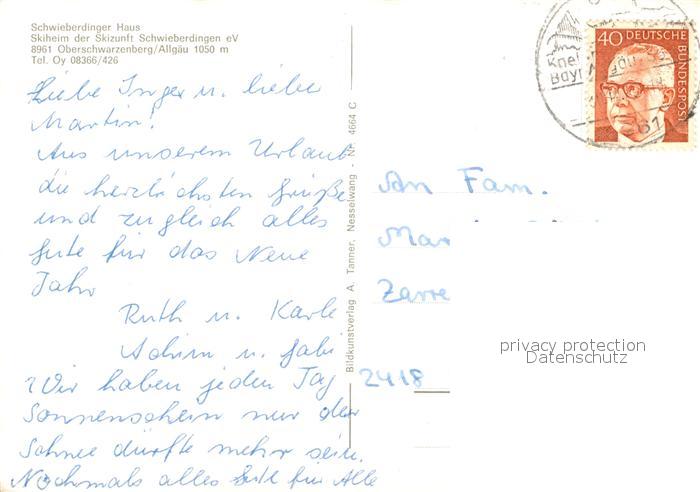 Schwieberdinger Haus
Skiheim der Skizunft Schwieberdingen eV
8961 Oberschwarzenberg/Allgäu 1050 m
Tel. Oy 08366/426
Liebe Inger u. liebe
Martin!
Aus unserem Urlaub
die herzlichsten Grüße
und zugleich alles
Gute für das Neue
Jahr
Ruth u. Karle
Achim u. Gabi
Wir haben jeden Tag
Sonnenschein nur der
Schnee dürfte mehr sein.
Nochmals alles Gute für Alle
Bildkunstverlag A. Tanner, Nesselwang - Nr. 4664 C
40 DEUTSCHE
BUNDESPOST
An Fam.
Mar
Zarre
2418
privacy protection
Datenschutz